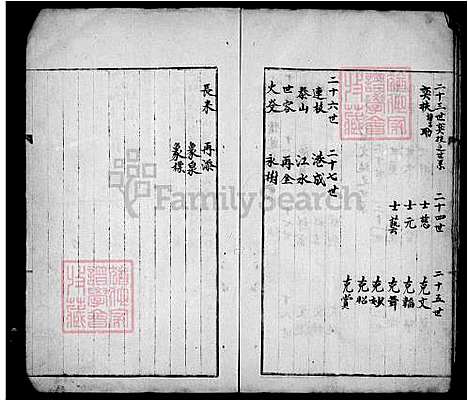 二十三世
奕扶
二十四世
士慈
士元
士藝
二十五世
克文
克福
克舜
克妙
克昭
克賞
二十六世
連枝
泰山
世容
火炎
二十七世
港成
江水
再全
永樹
長來
再添
象泉
象標
FamilySearch